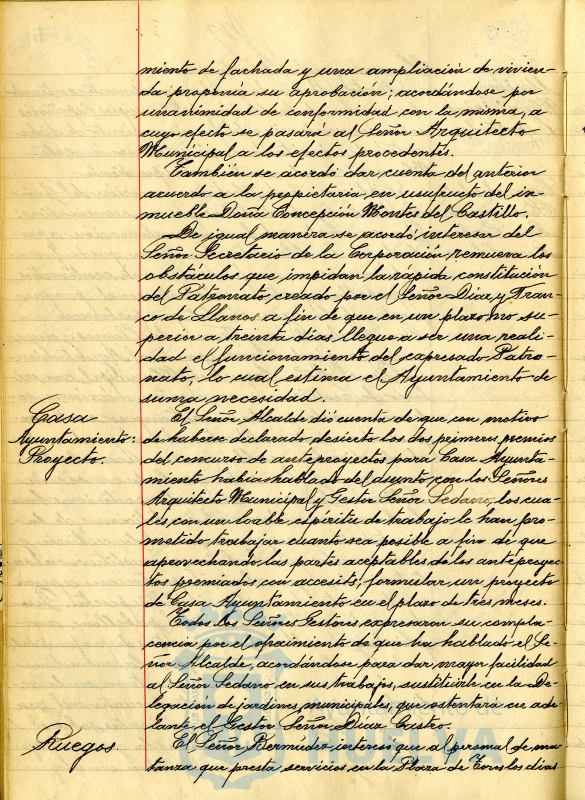 miento de fachada y una ampliación de vivien-
da proponia su aprobación; acordándose por
unanimidad de conformidad con la misma, a
cuyo efecto se pasará al Señor Arquitecto
Municipal a los efectos procedentes.
También se acordó dar cuenta del anterior
acuerdo a la propietaria en usufructo del in-
mueble Doña Concepción Montes del Castillo.
De igual manera se acordó, interesar del
Señor Secretario de la Corporación remueva los
obstáculos que impidan la rápida constitución
del Patronato creado por el Señor Diaz y Fran-
co de Llanos a fin de que en un plazo no su-
perior a treinta dias llegue a ser una reali-
dad el funcionamiento del expresado Patro-
nato, lo cual estima el Ayuntamiento de
suma necesidad.
Casa
Ayuntamiento:
Proyecto.
El Señor Alcalde dió cuenta de que con motivo
de haberse declarado desierto los dos primeros premios
del concurso de anteproyectos para Casa Ayunta-
miento habia hablado del asunto con los Señores
Arquitecto Municipal y Gestor Señor Sedano, los cua-
les, con un loable espíritu de trabajo le han pro-
metido trabajar cuanto sea posible a fin de que
aprovechando las partes aceptables de los anteproyec-
tos premiados con accesits, formular un proyecto
de Casa Ayuntamiento en el plazo de tres meses.
Todos los Señores Gestores expresaron su compla-
cencia por el ofrecimiento de que ha hablado el Se-
ñor Alcalde, acordándose para dar mayor facilidad
al Señor Sedano en sus trabajos, sustituirle en la De-
legación de jardines municipales, que ostentará en ade-
lante el Gestor Señor Diaz Castro.
Ruegos.
El Señor Bermudez interesó que al personal de ma-
tanza que presta servicios en la Plaza de Toros los dias
HUELVA